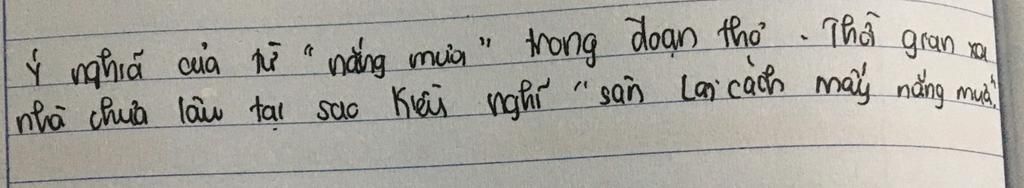 Ý nghiã của từ "nắng mưa" trong đoạn thơ. Thời gian xa
nhà chưa lâu tại sao Kiều nghĩ "sân Lai cách mấy nắng mưa"